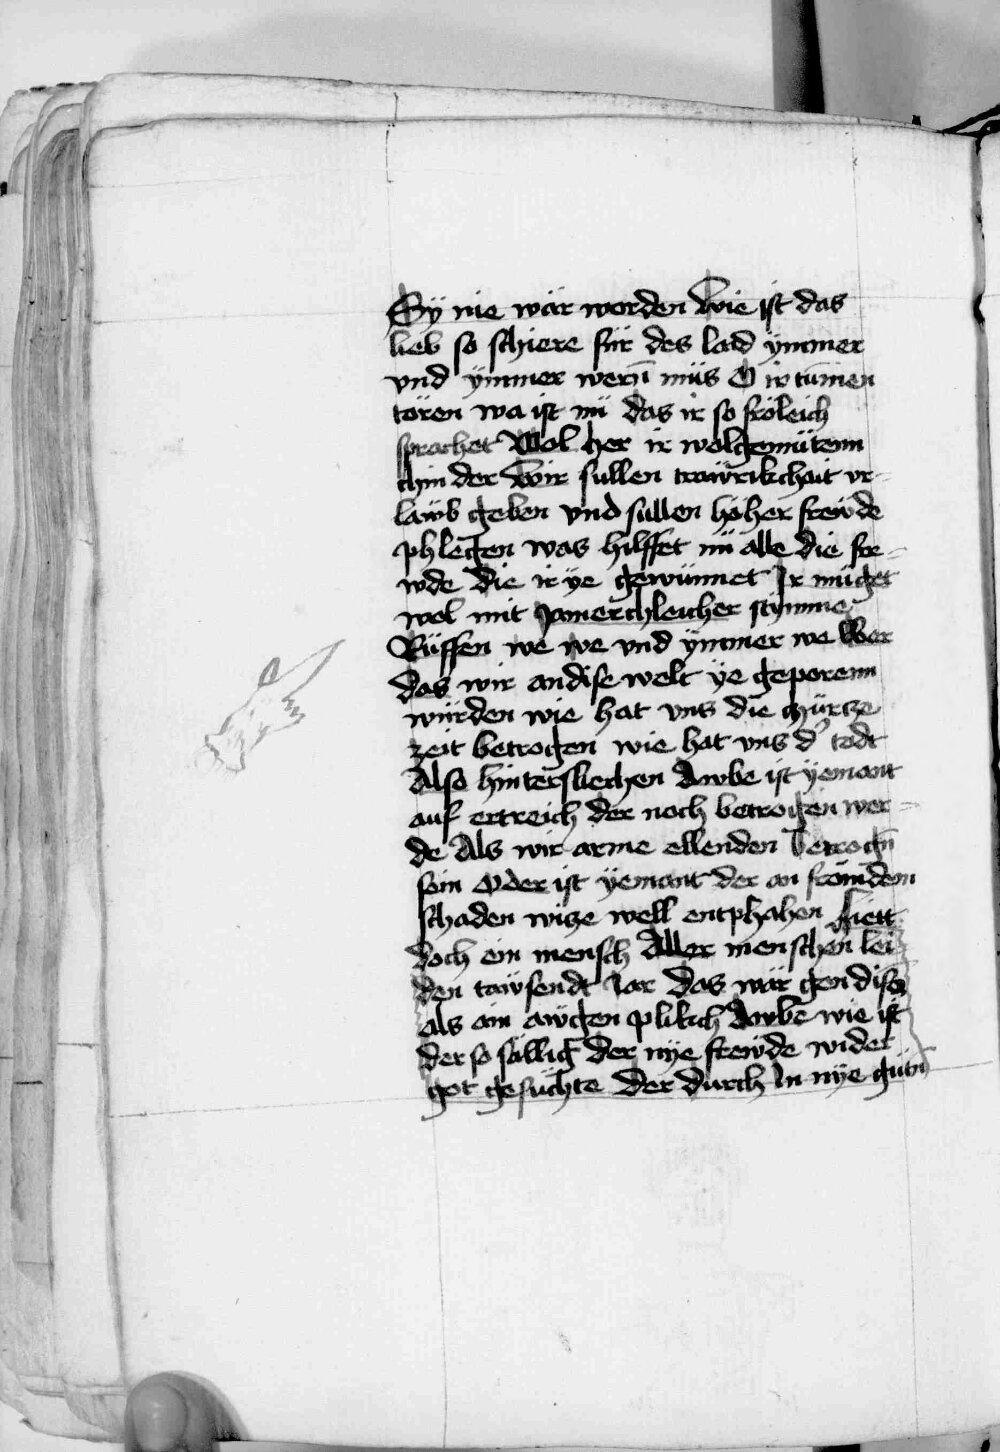 Sÿ nie wär worden Wie ist das
lieb so schiere für des laid ÿmmer
vnd ÿmmer wern̄ müs O ir tūmen
tören wa ist nü das ir so fröleich
sprachet Wol her ir wolgemütenn
chin der Wir sullen träẅrikchait vr-
läẅb geben vnd sullen höher freẅde
phlegen was hilffet nü alle die fre-
wde die ir ye gewünnet Ir müget
wol mit Jamerchleicher stymme
Rüffen we we vnd ÿmmer we Wer
das wir an dise welt ÿe geporenn
würden wie hat vns die chürcze
zeit betrogen wie hat vns d' todt
Also hinterslichen Awbe ist ÿemant
auf ertreich der noch betrogen wer-
de Als wir arme ellenden betrogn̄
sein Oder ist ÿemant der an frömdem
schaden wicze well entphahen Liett
doch ein mensch Aller menschen lei-
den taẅsendt Jar Das wär gen disem
als ain aẅgen plikch Awbe wie ist
der so sällig der nÿe freẅde wider
got gesüchte Der durch In nÿe gütn̄